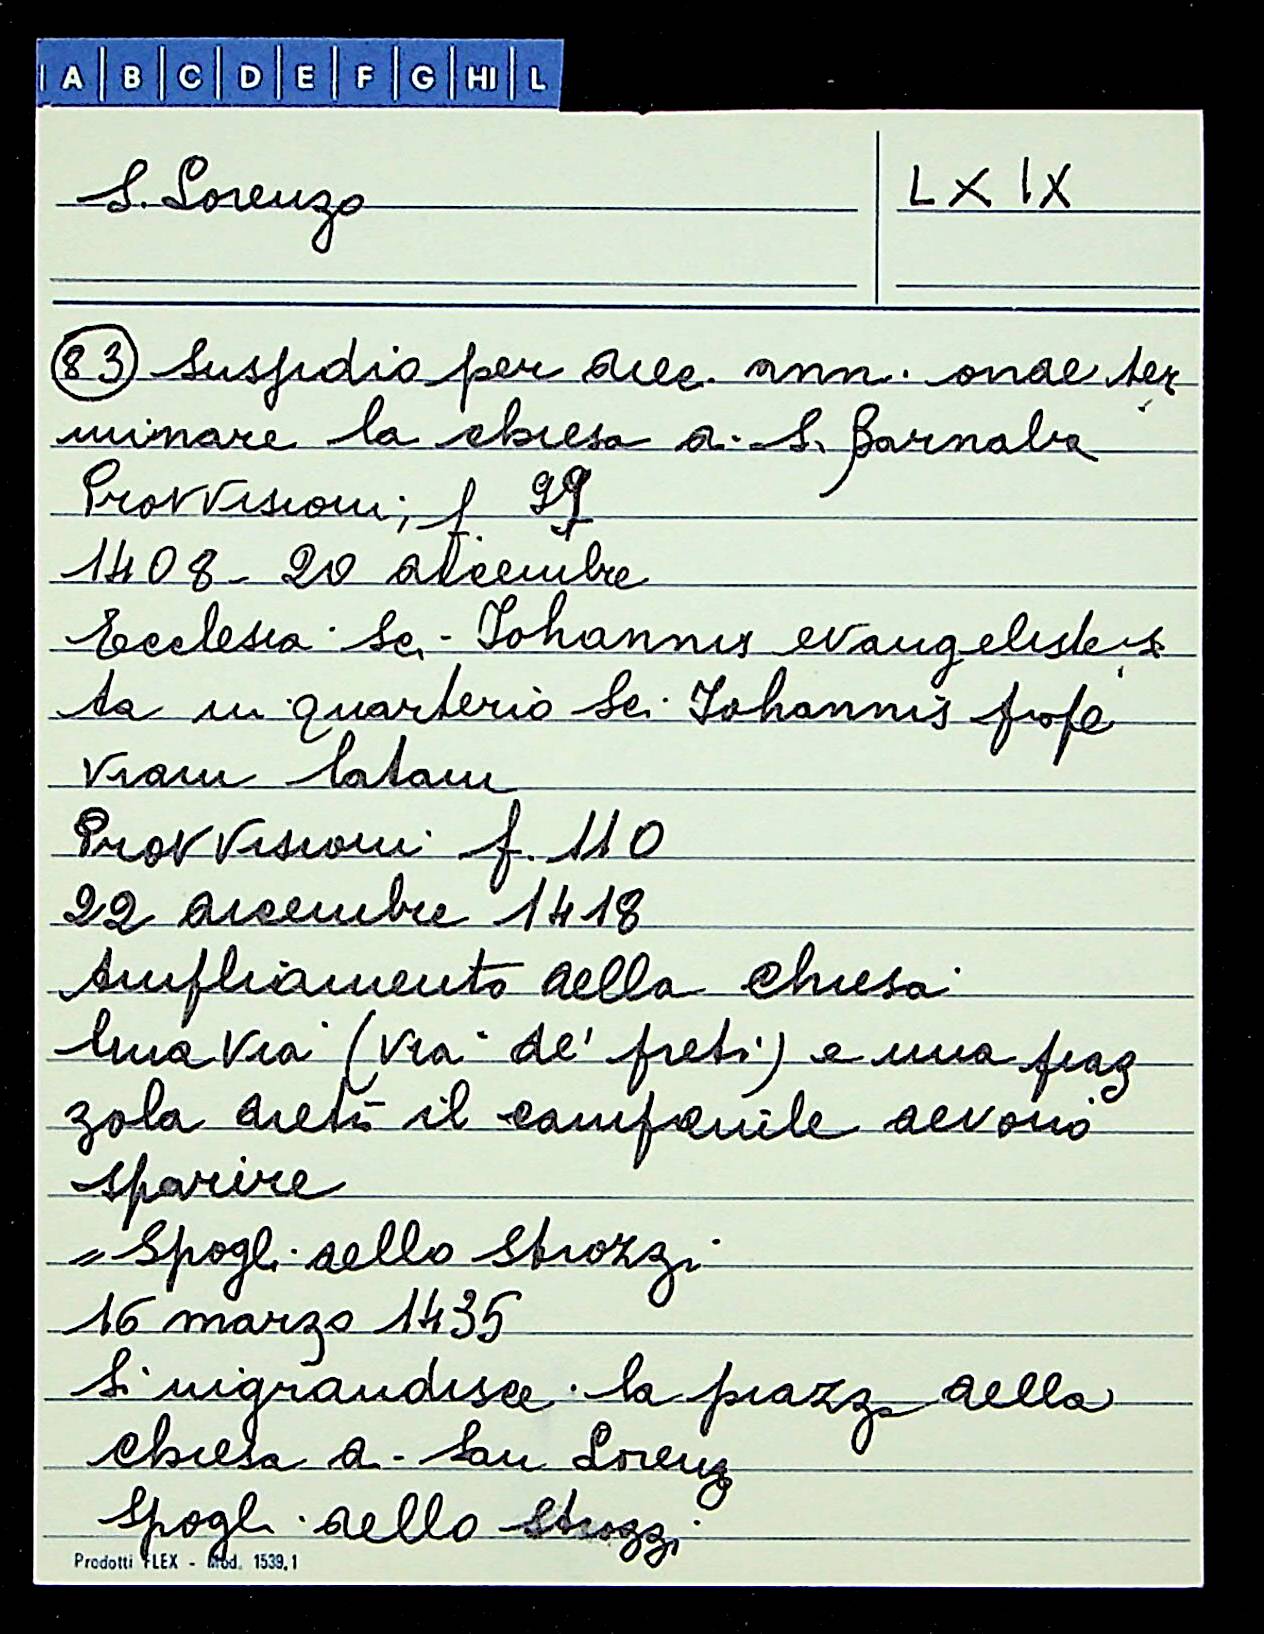 A B C D E F G HI L
S. Lorenzo
LXIX
83 Suspidio per diec. ann. onde ter
minare la chiesa di S. Barnaba
Provvisioni; f. 99
1408 - 20 dicembre
Ecclesia Sc. Iohannis evangeliste
ta in quarterio Sci. Iohannis prope
viam latam
Provvisioni f. 110
22 dicembre 1418
Ampliamento della chiesa
Una via (via de' preti) e una piaz
zola dietro il campanile devono
sparire
= Spogli dello Strozzi
16 marzo 1435
Si ingrandisce la piazza della
chiesa di San Lorenzo
Spogli dello Strozzi
Prodotti FLEX - Mod. 1539.1